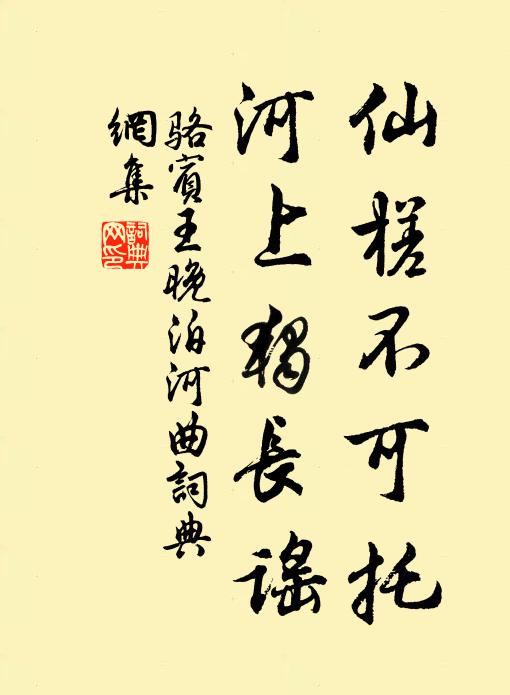 仙槎不可托
河上獨長謠
駱賓王晚泊河曲詞典
網集
詞典
网印